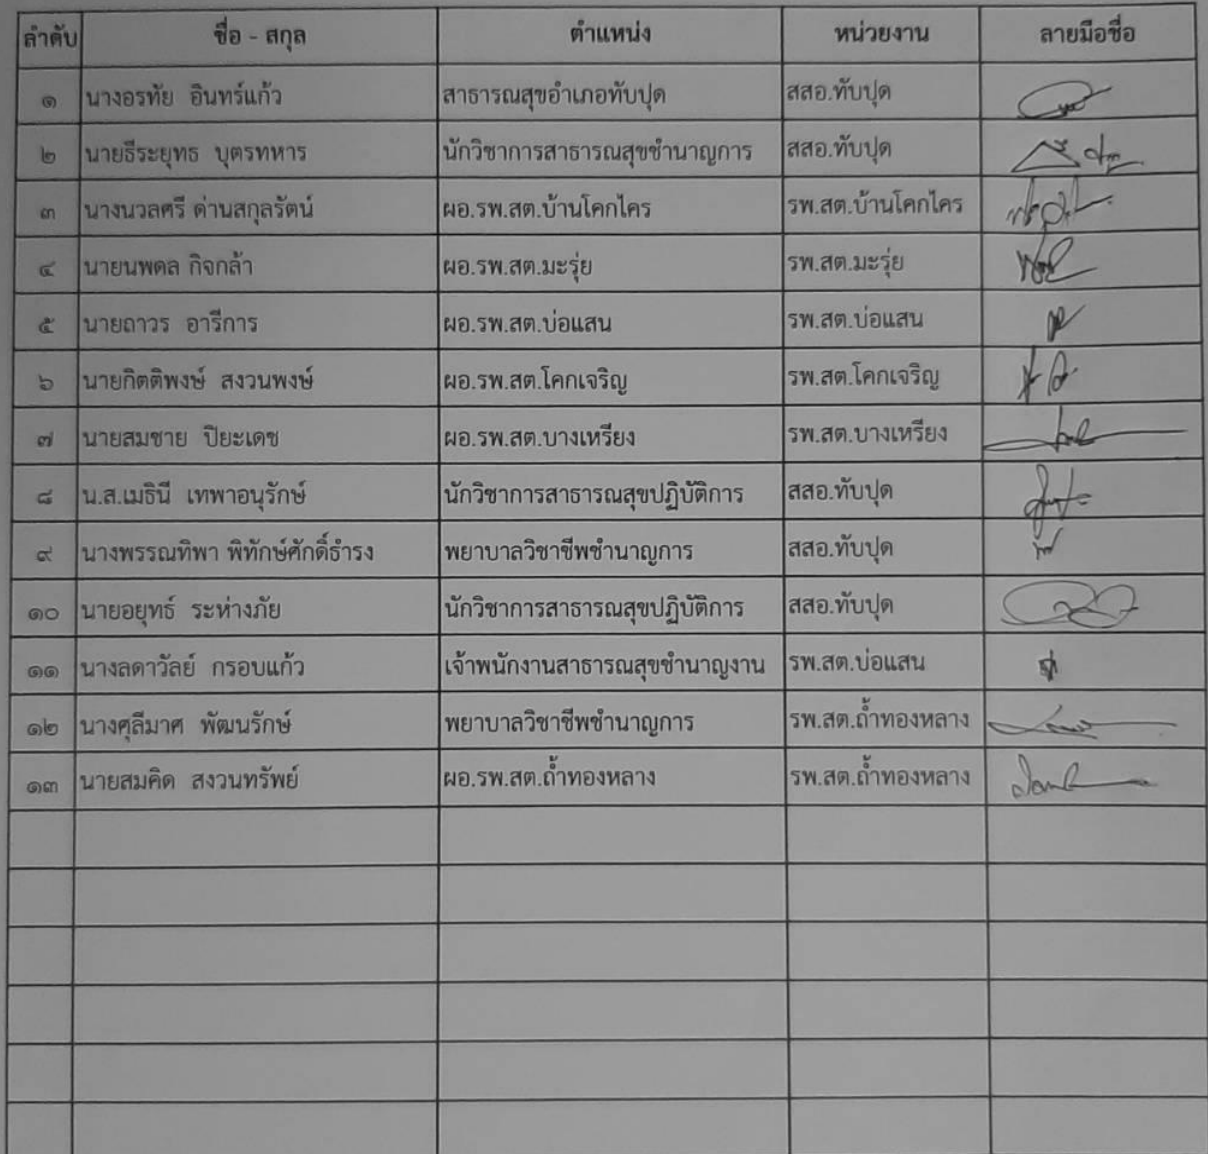 ลำดับ ชื่อ - สกุล ตำแหน่ง หน่วยงาน ลายมือชื่อ
๑ นางอรทัย อินทร์แก้ว สาธารณสุขอำเภอทับปุด สสอ.ทับปุด
๒ นายธีระยุทธ บุตรทหาร นักวิชาการสาธารณสุขชำนาญการ สสอ.ทับปุด
๓ นางนวลศรี ด่านสกุลรัตน์ ผอ.รพ.สต.บ้านโคกไคร รพ.สต.บ้านโคกไคร
๔ นายนพดล กิจกล้า ผอ.รพ.สต.มะรุ่ย รพ.สต.มะรุ่ย
๕ นายถาวร อารีการ ผอ.รพ.สต.บ่อแสน รพ.สต.บ่อแสน
๖ นายกิตติพงษ์ สงวนพงษ์ ผอ.รพ.สต.โคกเจริญ รพ.สต.โคกเจริญ
๗ นายสมชาย ปิยะเดช ผอ.รพ.สต.บางเหรียง รพ.สต.บางเหรียง
๘ น.ส.เมธินี เทพาอนุรักษ์ นักวิชาการสาธารณสุขปฏิบัติการ สสอ.ทับปุด
๙ นางพรรณทิพา พิทักษ์ศักดิ์ธำรง พยาบาลวิชาชีพชำนาญการ สสอ.ทับปุด
๑๐ นายอยุทธ์ ระห่างภัย นักวิชาการสาธารณสุขปฏิบัติการ สสอ.ทับปุด
๑๑ นางลดาวัลย์ กรอบแก้ว เจ้าพนักงานสาธารณสุขชำนาญงาน รพ.สต.บ่อแสน
๑๒ นางศุลีมาศ พัฒนรักษ์ พยาบาลวิชาชีพชำนาญการ รพ.สต.ถ้ำทองหลาง
๑๓ นายสมคิด สงวนทรัพย์ ผอ.รพ.สต.ถ้ำทองหลาง รพ.สต.ถ้ำทองหลาง